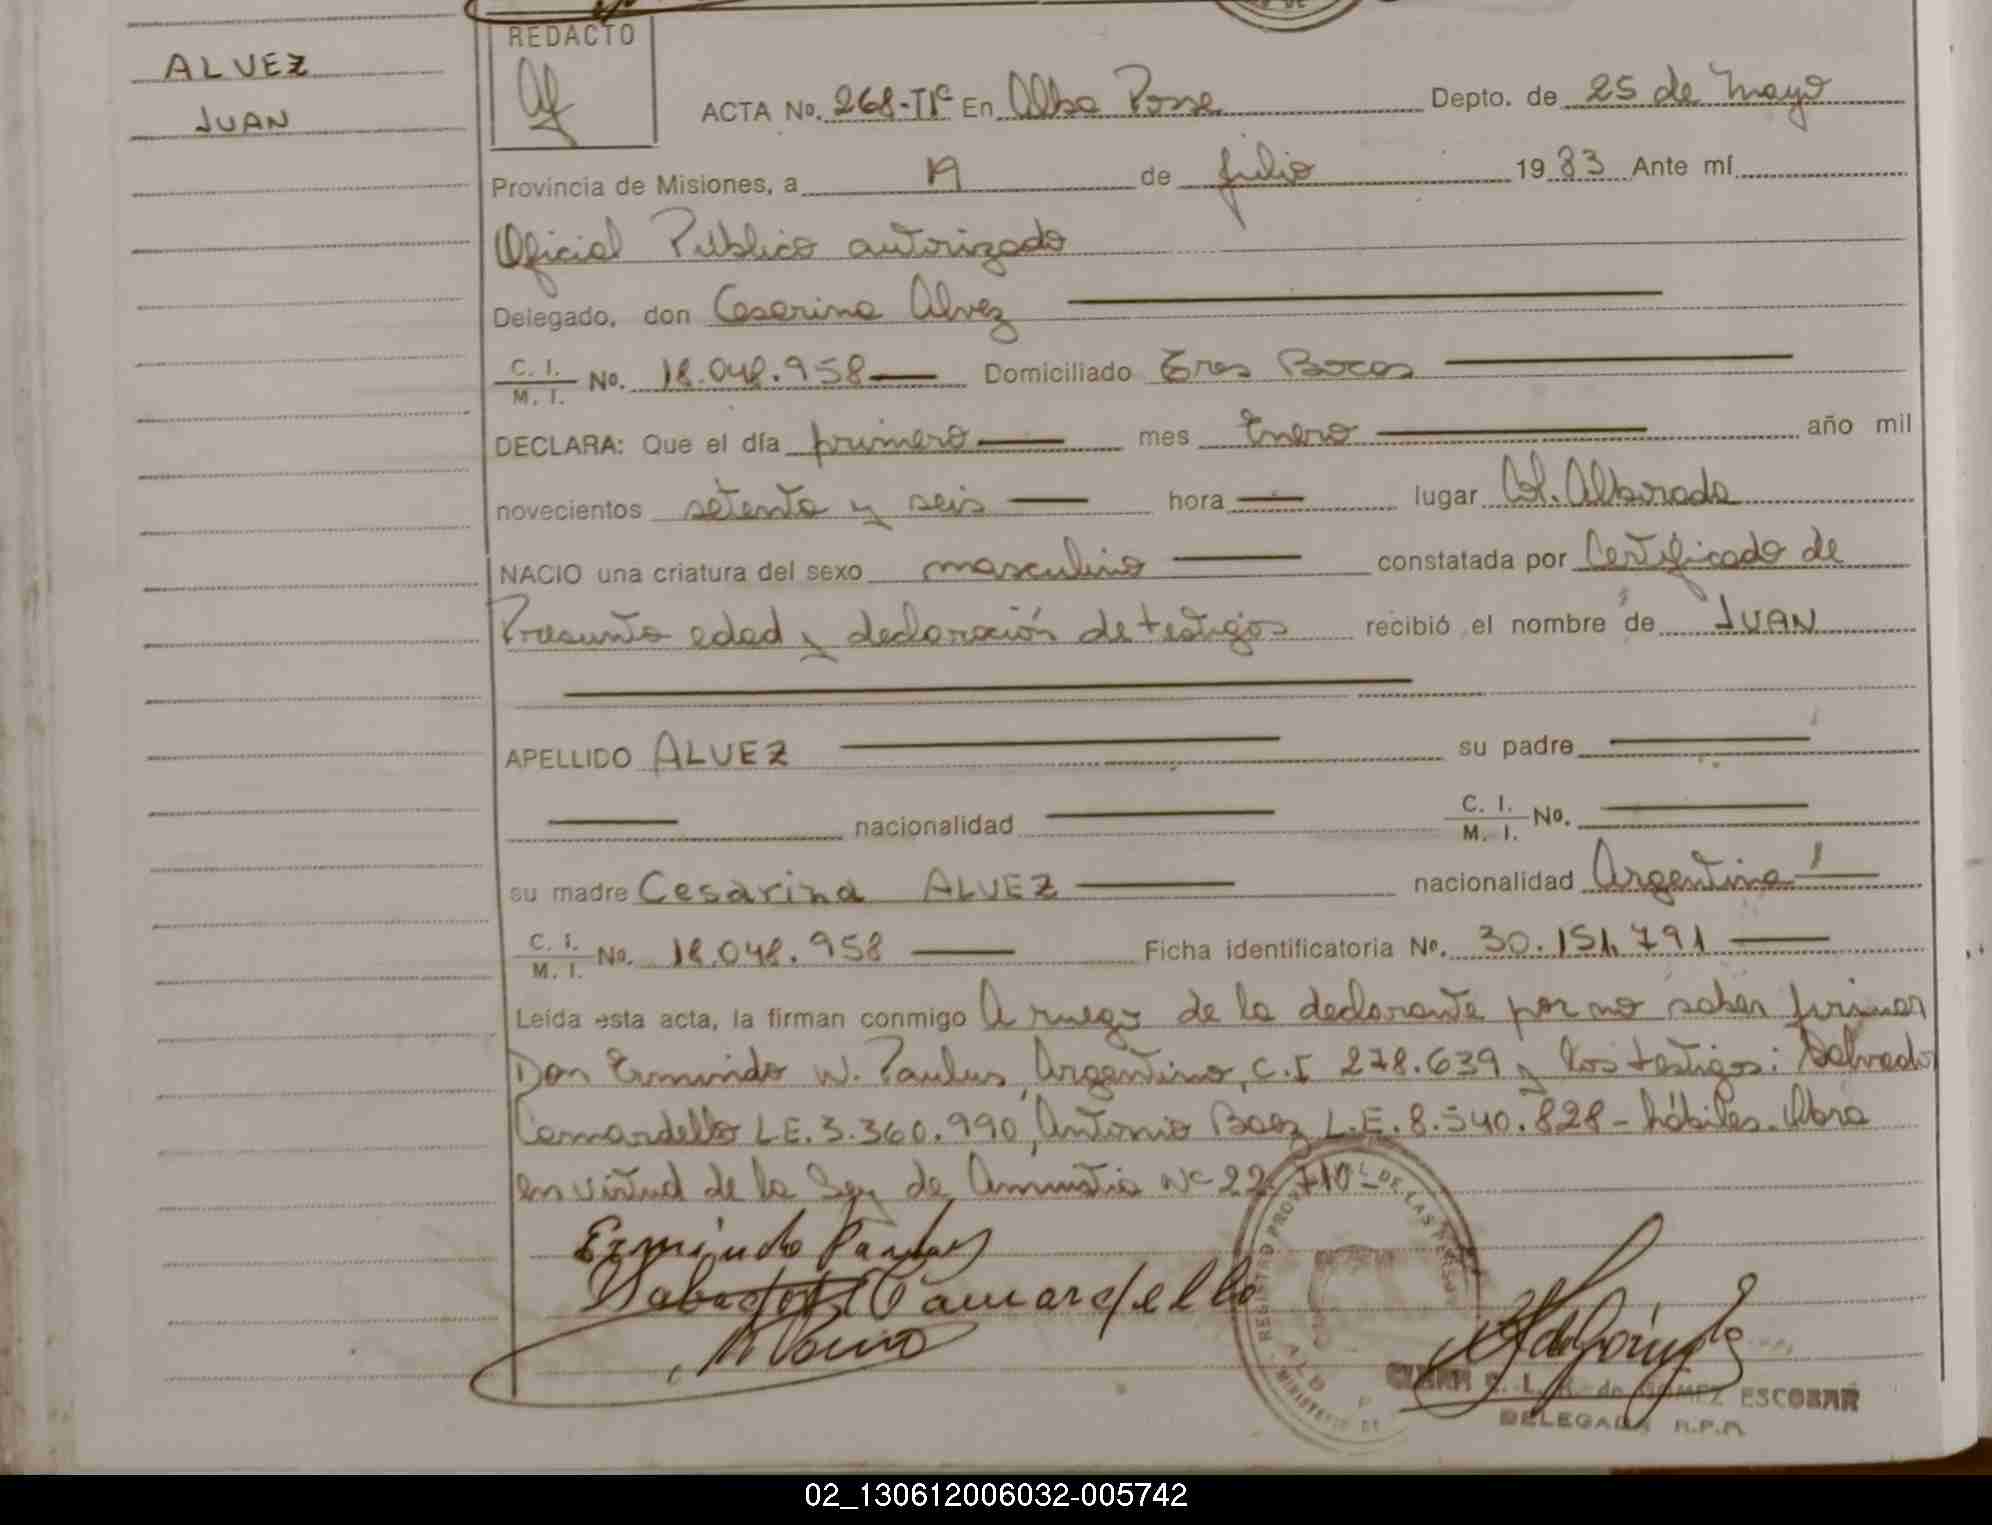 ALVEZ
JUAN
REDACTO
ACTA No. 268-TIº En Alba Posse Depto. de 25 de Mayo
Provincia de Misiones, a 19 de julio 1983 Ante mí
Oficial Público autorizado
Delegado, don Cesarina Alvez
C. I. / M. I. No. 18.048.958 Domiciliado Tres Bocas
DECLARA: Que el día primero mes Enero año mil
novecientos setenta y seis hora — lugar Col. Alborada
NACIO una criatura del sexo masculino constatada por Certificado de
Presunta edad y declaración de testigos recibió el nombre de JUAN
APELLIDO ALVEZ su padre —
— nacionalidad — C. I. / M. I. No. —
su madre Cesarina ALVEZ nacionalidad Argentina
C. I. / M. I. No. 18.048.958 Ficha identificatoria No. 30.151.791
Leída esta acta, la firman conmigo A ruego de la declarante por no saber firmar
Don Ermindo W. Paulus, Argentino, C.I 278.639 y los testigos: Salvador
Camardello L.E. 3.360.990, Antonio Baez L.E. 8.540.828 - hábiles. Obra
en virtud de la Ley de Amnistia Nº 22.710-
Ermindo Paulus
Camardello
REGISTRO PROV DE LAS PERSO
MINISTERIO DE
de GOMEZ ESCOBAR
DELEGADA R.P.P.
02_130612006032-005742